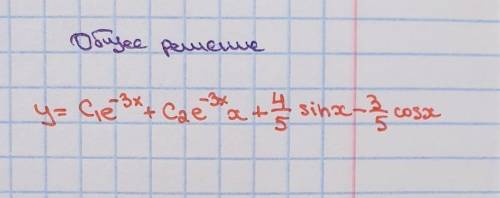 Общее решение
y = C₁e⁻³ˣ + C₂e⁻³ˣx + 4/5 sinx - 3/5 cosx